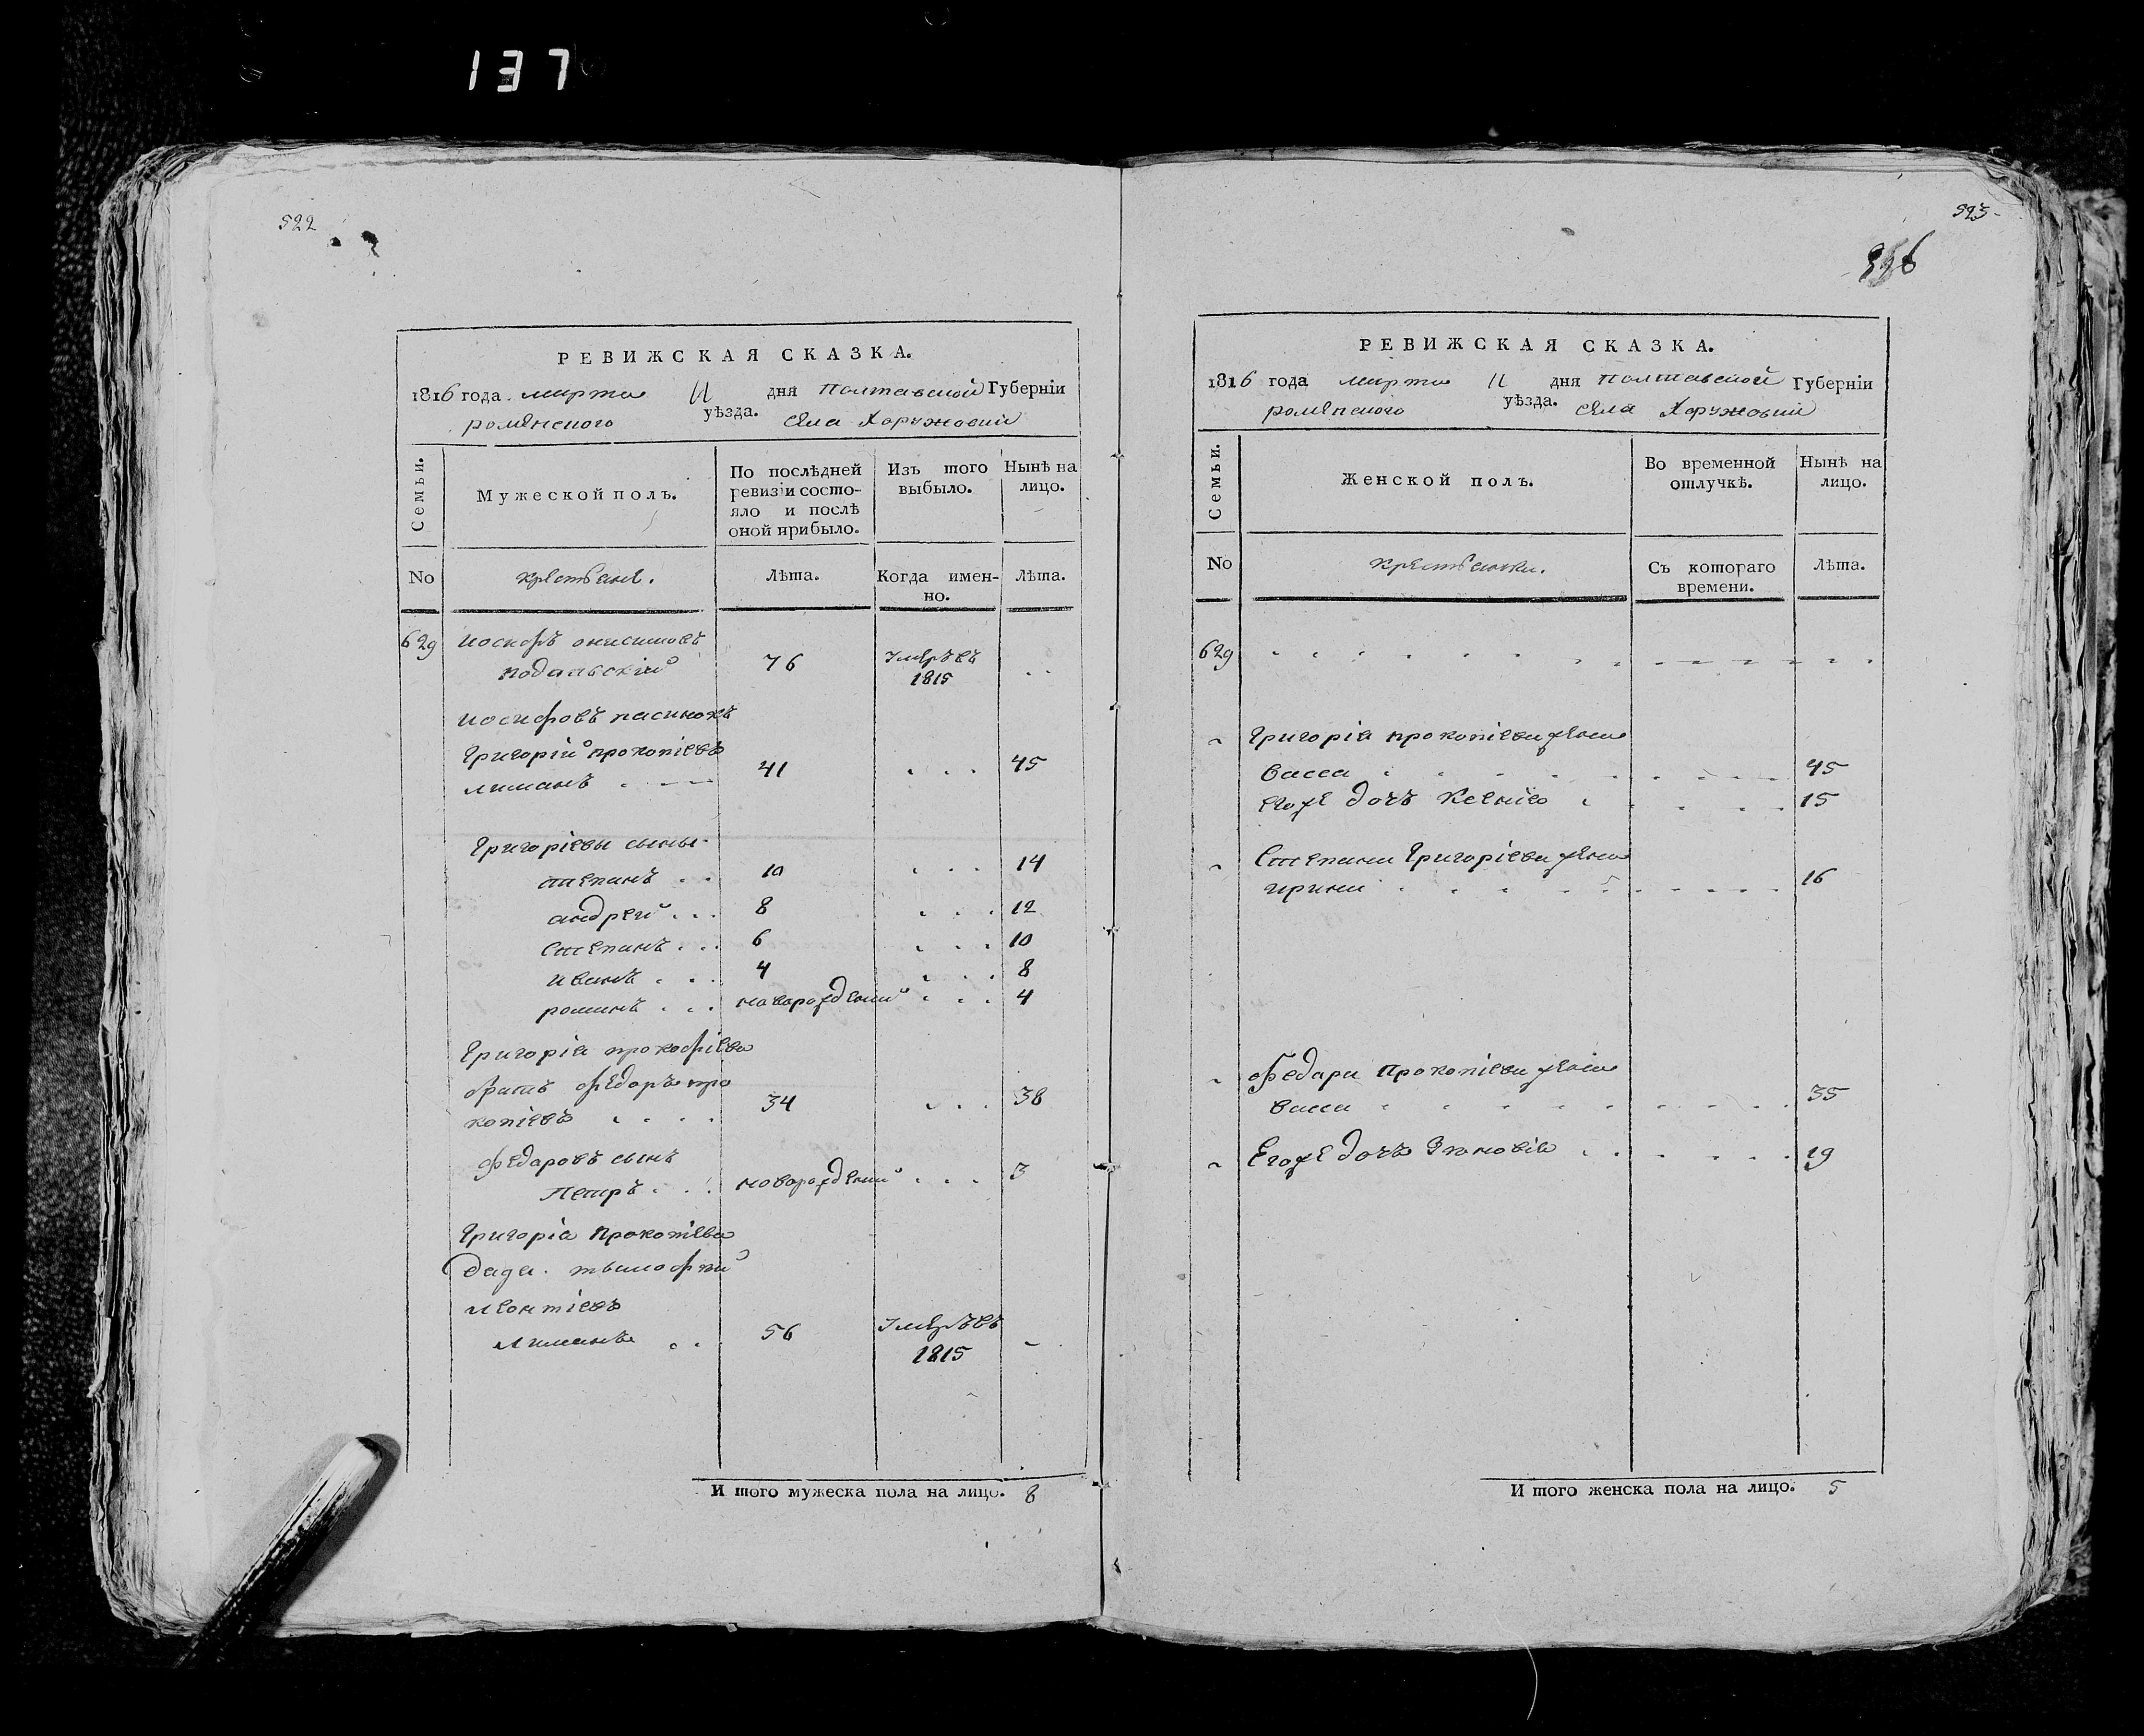 137
522
РЕВИЖСКАЯ СКАЗКА.
1816 года марта 11 дня Полтавской Губерніи
роменского уѣзда. села Хоружовки
Семьи.
Мужеской полъ.
По послѣдней ревизіи состояло и послѣ оной прибыло.
Изъ того выбыло.
Нынѣ на лицо.
No
крестьяне.
Лѣта.
Когда именно.
Лѣта.
629 иосифъ онисимовъ
подольскій 76 умеръ въ 1815
иосифовъ пасинокъ
григорій прокопіевъ
лиманъ 41 45
григоріевы сыны
степанъ 10 14
андрей 8 12
степанъ 6 10
иванъ 4 8
романъ новорожденій 4
григорія прокофіева
братъ федоръ про
копіевъ 34 38
федоровъ сынъ
петръ новорожденій 3
григорія прокопіева
дядя тымофей
леонтіевъ
лиманъ 56 умеръ въ 1815
И того мужеска пола на лицо. 8
523
РЕВИЖСКАЯ СКАЗКА.
1816 года марта 11 дня полтавской Губерніи
роменского уѣзда. села Хоружовки
Семьи.
Женской полъ.
Во временной отлучкѣ.
Нынѣ на лицо.
No
крестьянки.
Съ котораго времени.
Лѣта.
629
григорія прокопіева жена
васса 45
Его же дочь Ксенія 15
Степана григоріева жена
ирина 16
федора прокопіева жена
васса 35
Его же дочь Зіновія 19
И того женска пола на лицо. 5